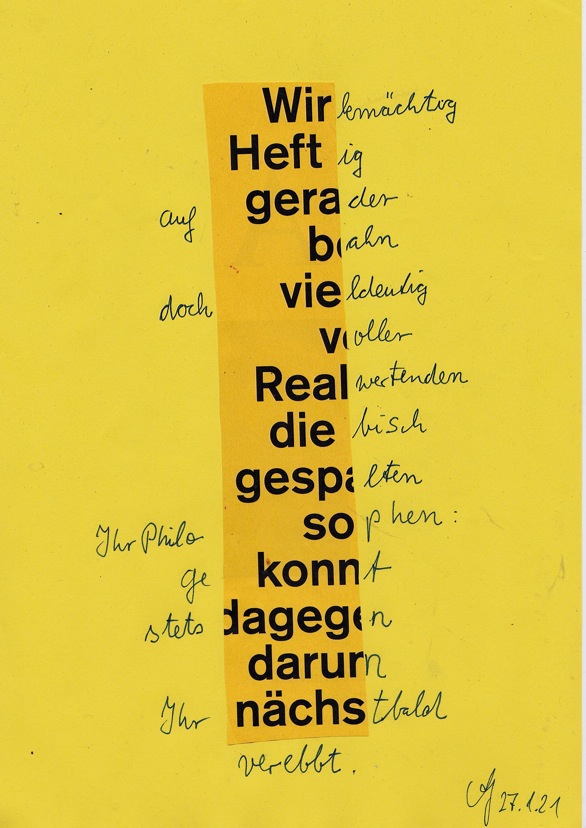 Wir kmächtig
Heft ig
auf gerader
bahn
doch vieldeutig
voller
Realwertenden
die bisch
gespalten
Ihr Philo sophen:
ge konnt
stets dagegen
darum
Ihr nächstbald
verebbt.
27.1.21